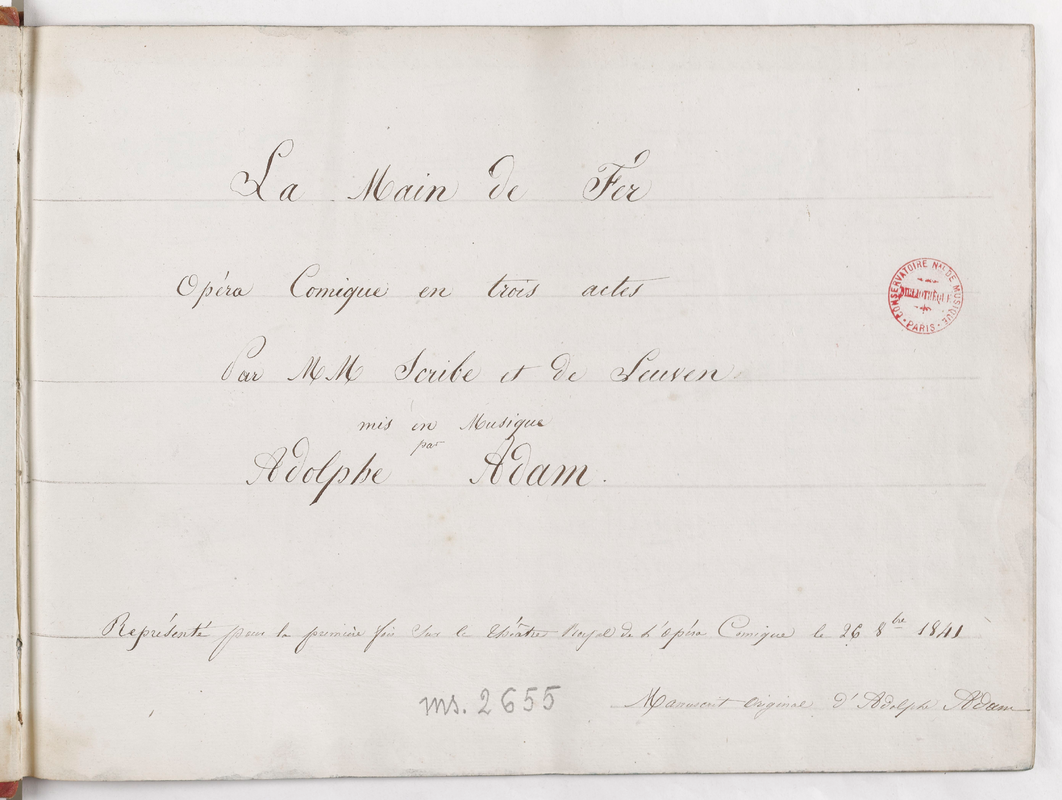 La Main de Fer
Opéra Comique en trois actes
Par MM Scribe et de Leuven
mis en Musique
par
Adolphe Adam.
Représenté pour la première fois sur le théâtre Royal de L'Opéra Comique le 26 8bre 1841
ms. 2655
Manuscrit original d'Adolphe Adam
CONSERVATOIRE NAL DE MUSIQUE
BIBLIOTHÈQUE
PARIS